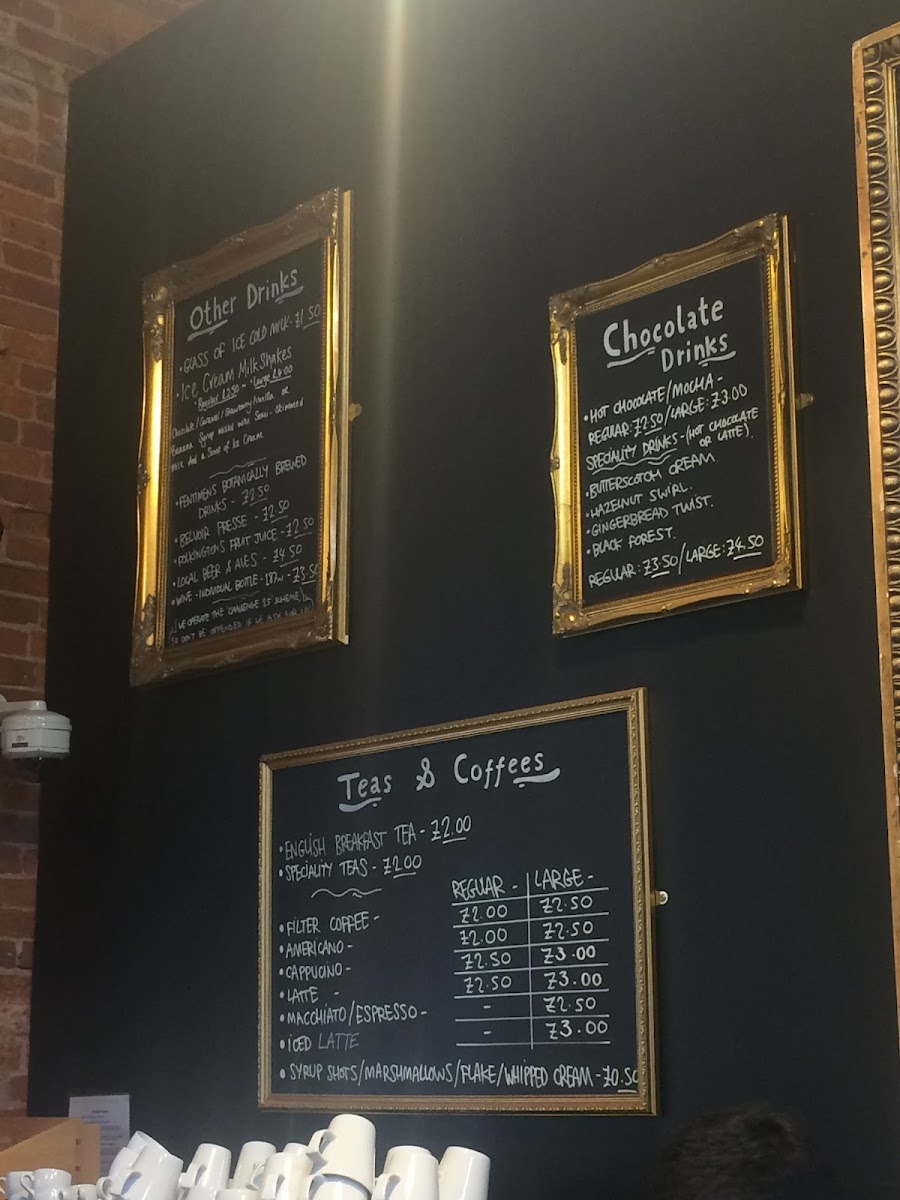 Other Drinks
• GLASS OF ICE COLD MILK - £1.50
• Ice Cream MilkShakes
• Regular £3.50 - • Large £4.00
Chocolate / Caramel / Strawberry / Vanilla or
Banana Syrup mixed with Semi-Skimmed
Milk And a Scoop of Ice Cream
• FENTIMENS BOTANICALLY BREWED
DRINKS - £2.50
• BELVOIR PRESSE - £2.50
• FOLKINGTONS FRUIT JUICE - £2.50
• LOCAL BEER & ALES - £4.50
• WINE - INDIVIDUAL BOTTLE - 187ml - £3.50
WE OPERATE THE 'CHALLENGE 25' SCHEME
SO DON'T BE OFFENDED IF WE ASK FOR I.D
Chocolate
Drinks
• HOT CHOCOLATE/MOCHA -
REGULAR: £2.50/LARGE: £3.00
SPECIALITY DRINKS - (HOT CHOCOLATE
OR LATTE).
• BUTTERSCOTCH CREAM
• HAZELNUT SWIRL.
• GINGERBREAD TWIST.
• BLACK FOREST.
REGULAR: £3.50/LARGE: £4.50
Teas & Coffees
• ENGLISH BREAKFAST TEA - £2.00
• SPECIALITY TEAS - £2.00
REGULAR - LARGE -
• FILTER COFFEE - £2.00 £2.50
• AMERICANO - £2.00 £2.50
• CAPPUCINO - £2.50 £3.00
• LATTE - £2.50 £3.00
• MACCHIATO/ESPRESSO - - £2.50
• ICED LATTE - £3.00
• SYRUP SHOTS/MARSHMALLOWS/FLAKE/WHIPPED CREAM - £0.50